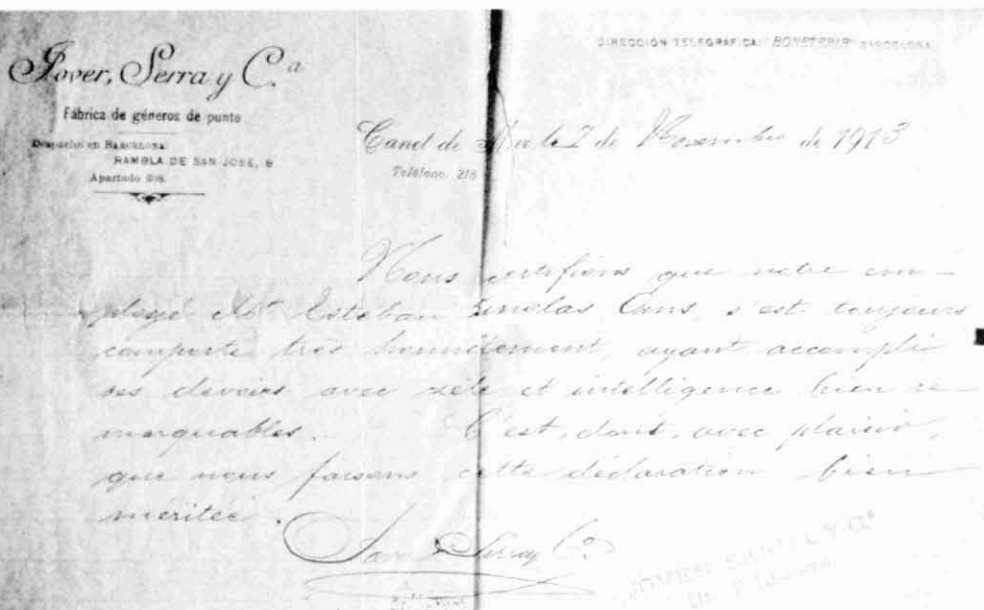 Jover, Serra y C.ª
Fábrica de géneros de punto
Despacho en BARCELONA:
RAMBLA DE SAN JOSÉ,
Apartado
DIRECCIÓN TELEGRÁFICA: BARCELONA
Canet de Mar le 7 de Novembre de 1913
Teléfono. 218
Nous certifions que notre em-
ployé Mr Esteban Cans, s'est toujours
comporté très honnêtement, ayant accompli
ses devoirs avec zèle et intelligence bien re-
marquables. C'est, donc, avec plaisir,
que nous faisons cette déclaration bien
méritée.
Jover Serra y Cª